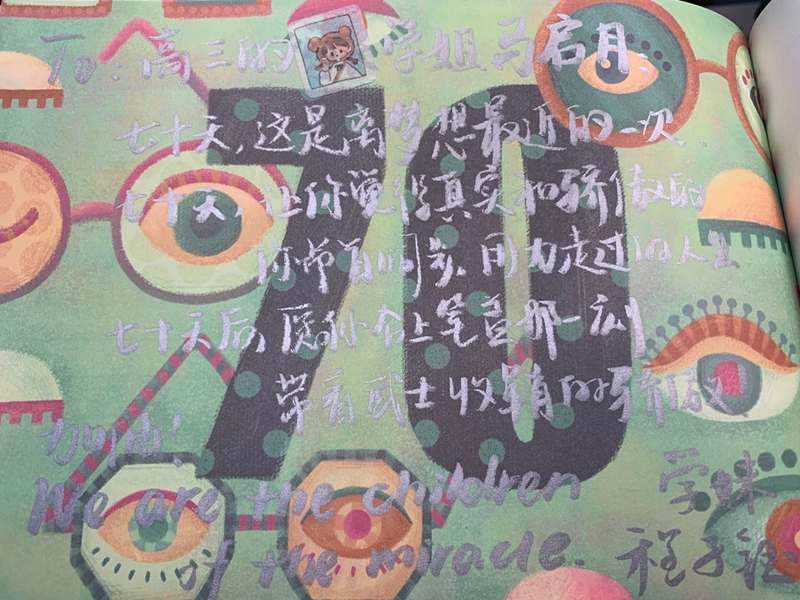 To：高三的学姐马启月：
70
七十天，这是离梦想最近的一次，
七十天，让你觉得真实和骄傲的
你带着脚步，用力走过的人生
七十天后，愿你合上笔盖那一刻
带着武士收鞘的骄傲
加油！
We are the children
of the miracle.
学妹
程子